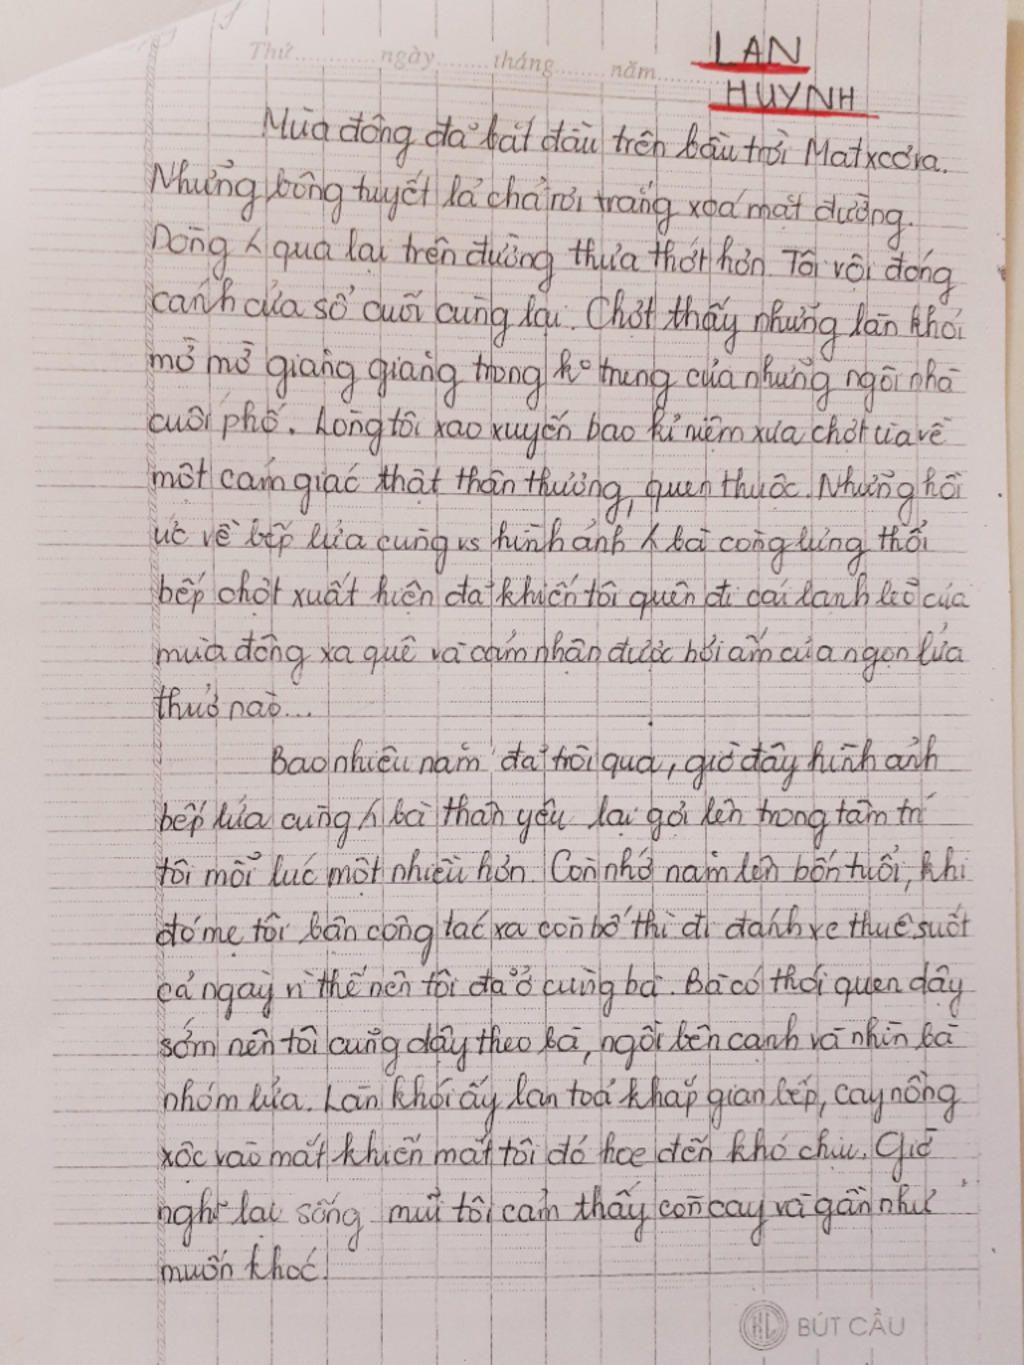 Thứ........ngày.......tháng.......năm.......
LAN
HUYNH
Mùa đông đã bắt đầu trên bầu trời Matxcơva.
Những bông tuyết lả chả rơi trắng xoá mặt đường.
Dòng ʎ qua lại trên đường thưa thớt hơn. Tôi vội đóng
cánh cửa sổ cuối cùng lại. Chợt thấy những làn khói
mờ mờ giăng giăng trong ko trung của những ngôi nhà
cuối phố. Lòng tôi xao xuyến bao kỉ niệm xưa chợt ùa về
một cảm giác thật thân thương, quen thuộc. Những hồi
ức về bếp lửa cùng vs hình ảnh ʎ bà còng lưng thổi
bếp chợt xuất hiện đã khiến tôi quên đi cái lạnh lẽo của
mùa đông xa quê và cảm nhận được hơi ấm của ngọn lửa
thuở nào...
Bao nhiêu năm đã trôi qua, giờ đây hình ảnh
bếp lửa cùng ʎ bà thân yêu lại gợi lên trong tâm trí
tôi mỗi lúc một nhiều hơn. Còn nhớ năm lên bốn tuổi, khi
đó mẹ tôi bận công tác xa còn bố thì đi đánh xe thuê suốt
cả ngày vì thế nên tôi đã ở cùng bà. Bà có thói quen dậy
sớm nên tôi cũng dậy theo bà, ngồi bên cạnh và nhìn bà
nhóm lửa. Làn khói ấy lan toả khắp gian bếp, cay nồng
xộc vào mắt khiến mắt tôi đỏ hoe đến khó chịu. Giờ
nghĩ lại sống mũi tôi cảm thấy còn cay và gần như
muốn khóc.
BÚT CẦU